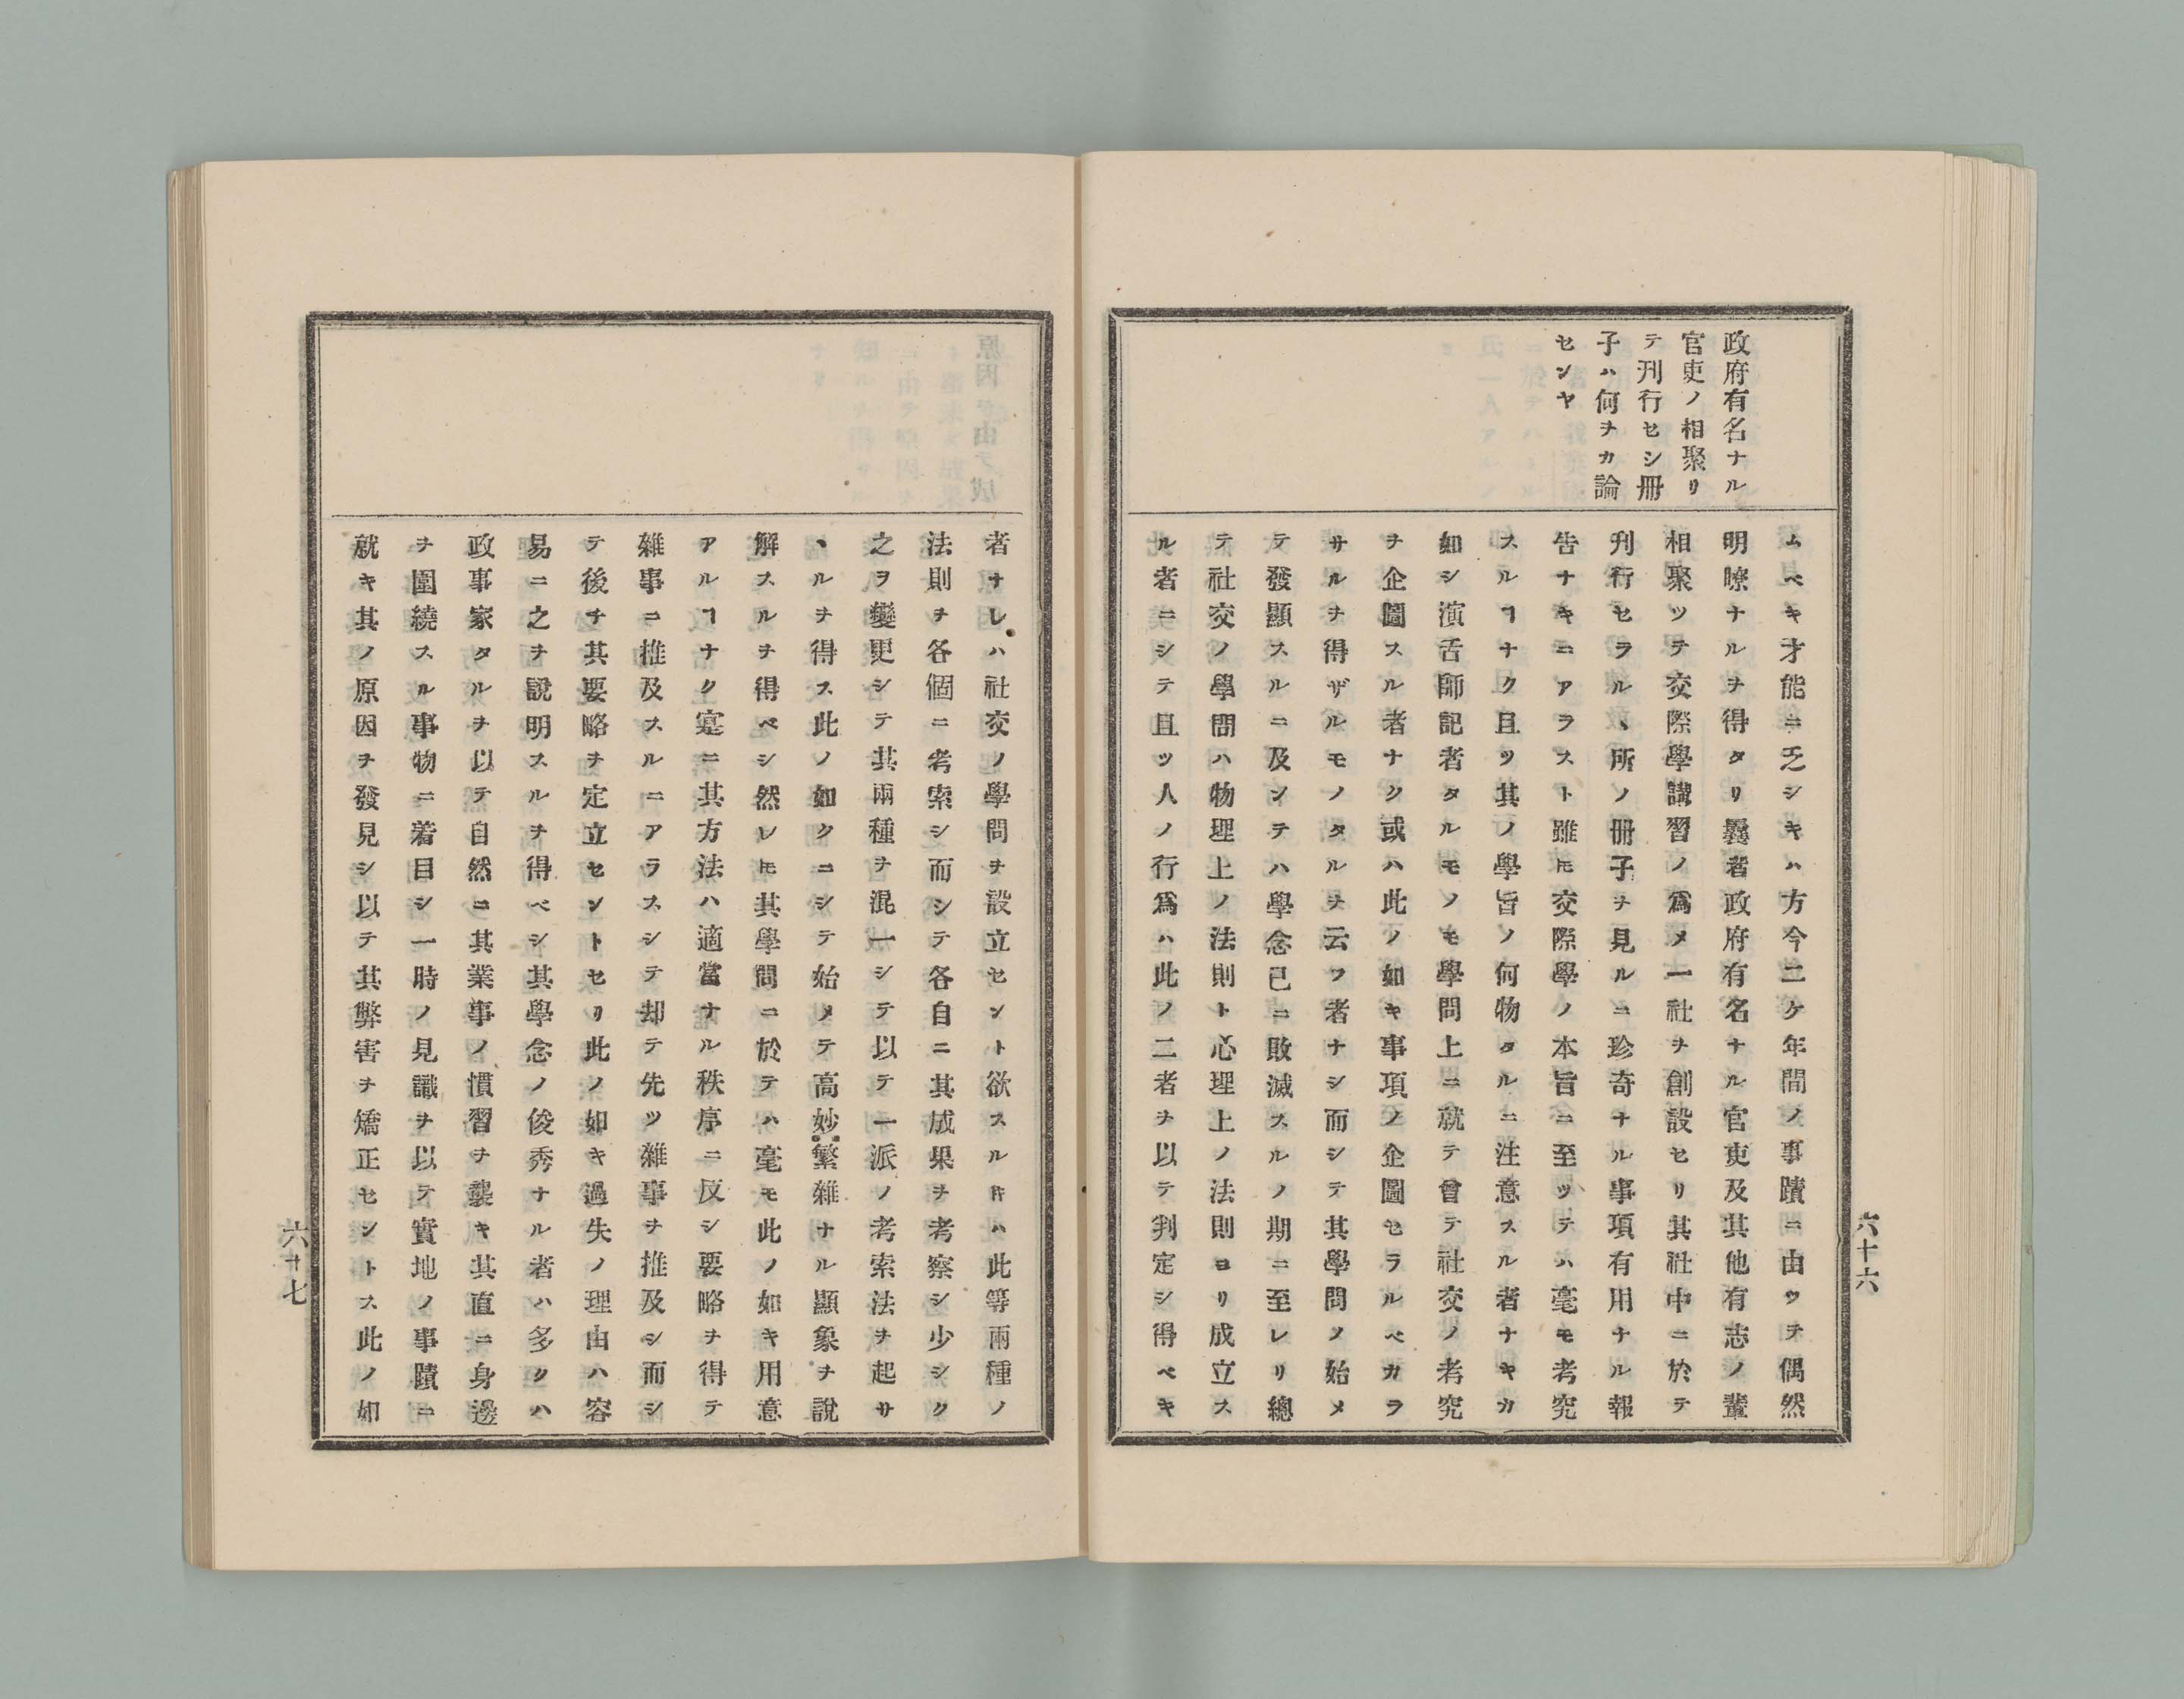 政府有名ナル
官吏ノ相聚リ
テ刊行セシ冊
子ハ何ヲカ論
センヤ
ムベキ才能ニ乏シキハ方今二ケ年間ノ事蹟ニ由ツテ偶然
明瞭ナルヲ得タリ曩者政府有名ナル官吏及其他有志ノ輩
相聚ツテ交際學講習ノ爲メ一社ヲ創設セリ其社中ニ於テ
刋行セラルヽ所ノ冊子ヲ見ルニ珍奇ナル事項有用ナル報
告ナキニアラスト雖𪜈交際學ノ本旨ニ至ツテハ毫モ考究
スルヿナク且ツ其ノ學旨ノ何物タルニ注意スル者ナキカ
如シ演舌師記者タルモノモ學問上ニ就テ曾テ社交ノ考究
ヲ企圖スル者ナク或ハ此ノ如キ事項ノ企圖セラルベカラ
サルヲ得ザルモノタルヲ云フ者ナシ而シテ其學問ノ始メ
テ發顯スルニ及ンテハ學念已ニ敗滅スルノ期ニ至レリ總
テ社交ノ學問ハ物理上ノ法則ト心理上ノ法則ヨリ成立ス
ル者ニシテ且ツ人ノ行爲ハ此ノ二者ヲ以テ判定シ得ベキ
六十六
者ナレハ社交ノ學問ヲ設立セント欲スル𪜈ハ此等兩種ノ
法則ヲ各個ニ考索シ而シテ各自ニ其成果ヲ考察シ少シク
之ヲ變更シテ其兩種ヲ混一シテ以テ一派ノ考索法ヲ起サ
ヽルヲ得ス此ノ如クニシテ始メテ高妙繁雜ナル顯象ヲ說
解スルヲ得ベシ然レ𪜈其學問ニ於テハ毫モ此ノ如キ用意
アルヿナク寔ニ其方法ハ適當ナル秩序ニ反シ要略ヲ得テ
雜事ニ推及スルニアラスシテ却テ先ツ雜事ヲ推及シ而シ
テ後チ其要略ヲ定立セントセリ此ノ如キ過失ノ理由ハ容
易ニ之ヲ說明スルヲ得ベシ其學念ノ俊秀ナル者ハ多クハ
政事家タルヲ以テ自然ニ其業事ノ慣習ヲ襲キ其直ニ身邊
ヲ圍繞スル事物ニ着目シ一時ノ見識ヲ以テ實地ノ事蹟ニ
就キ其ノ原因ヲ發見シ以テ其弊害ヲ矯正セントス此ノ如
六十七